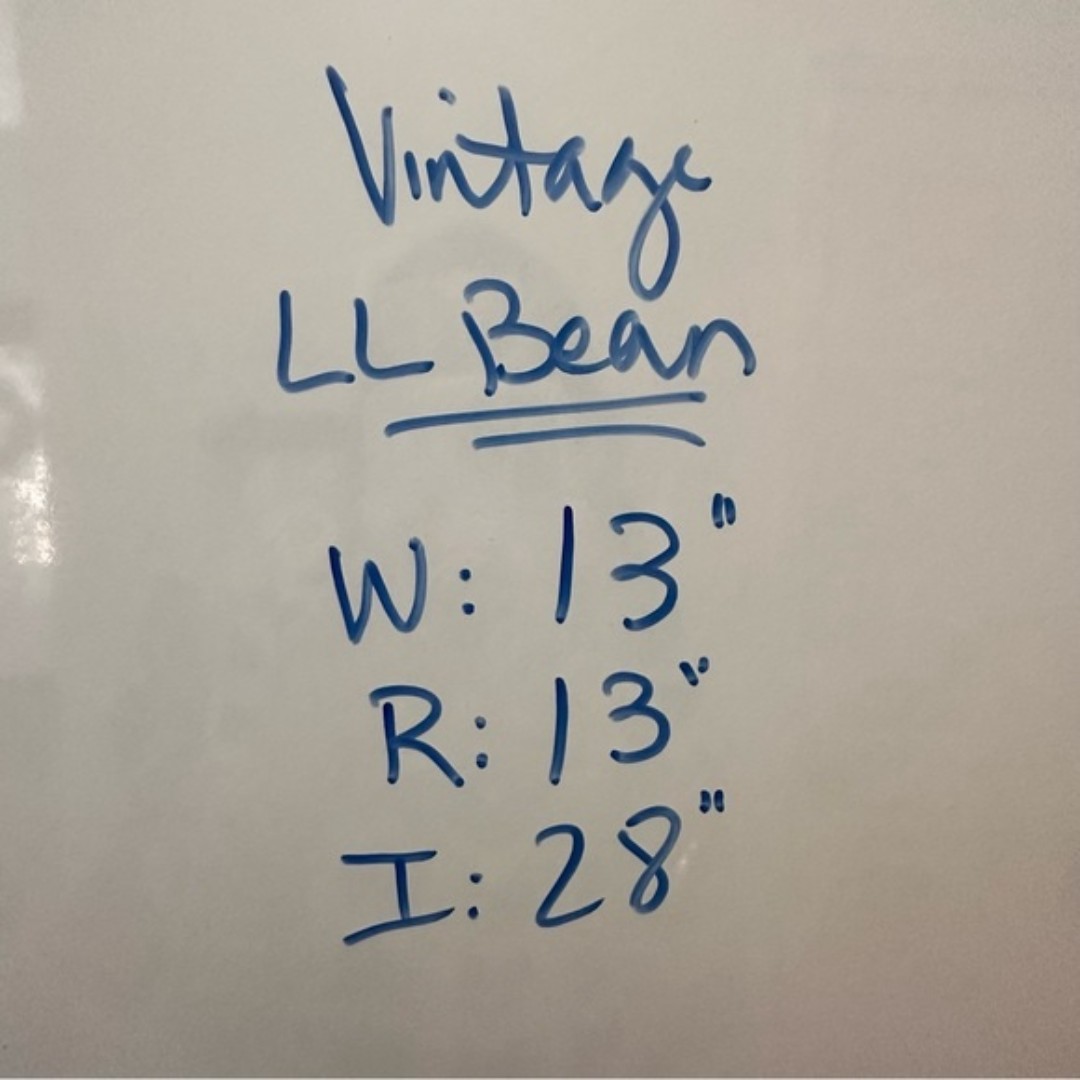 Vintage
LL Bean
W: 13"
R: 13"
I: 28"